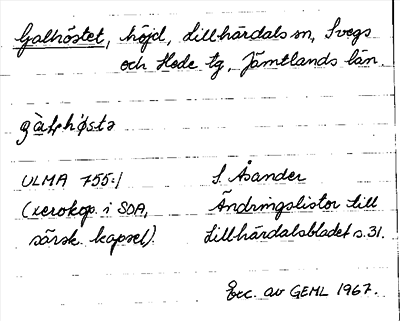 Galhöstet, höjd, Lillhärdals sn, Svegs
och Hede tg, Jämtlands län.
gàlhö́stə
ULMA 755:1 S Åsander
(xerokop. i SOA, Ändringslistor till
särsk. kapsel). Lillhärdalsbladet s. 31.
Exc. av GEML 1967.